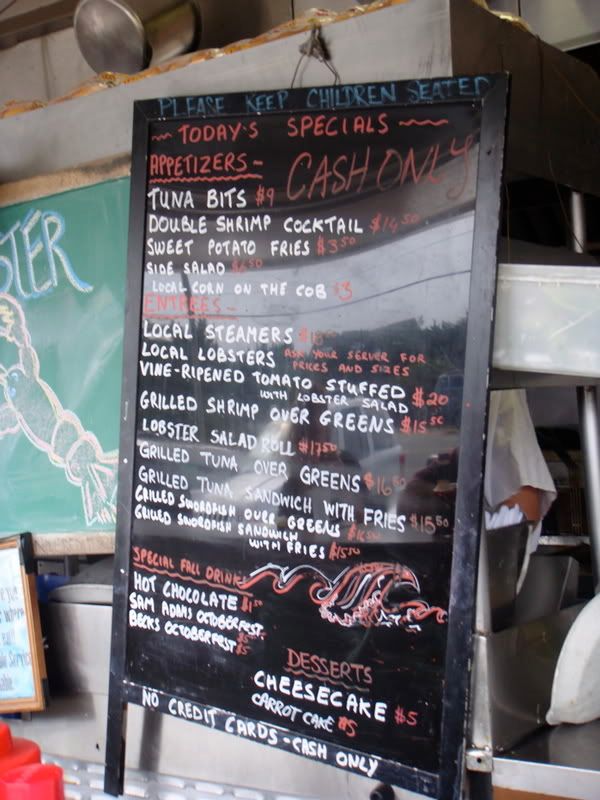 PLEASE KEEP CHILDREN SEATED
TODAY'S SPECIALS
CASH ONLY
APPETIZERS -
TUNA BITS $9
DOUBLE SHRIMP COCKTAIL $14.50
SWEET POTATO FRIES $3.50
SIDE SALAD
LOCAL CORN ON THE COB $3
ENTREES -
LOCAL STEAMERS
LOCAL LOBSTERS ASK YOUR SERVER FOR
PRICES AND SIZES
VINE-RIPENED TOMATO STUFFED
WITH LOBSTER SALAD $20
GRILLED SHRIMP OVER GREENS $15.50
LOBSTER SALAD ROLL $17.50
GRILLED TUNA OVER GREENS $16.50
GRILLED TUNA SANDWICH WITH FRIES $15.50
GRILLED SWORDFISH OVER GREENS
GRILLED SWORDFISH SANDWICH
WITH FRIES $15.50
SPECIAL FALL DRINKS
HOT CHOCOLATE
SAM ADAMS OCTOBERFEST
BECKS OCTOBERFEST $5
DESSERTS
CHEESECAKE $5
CARROT CAKE $5
NO CREDIT CARDS - CASH ONLY
STER